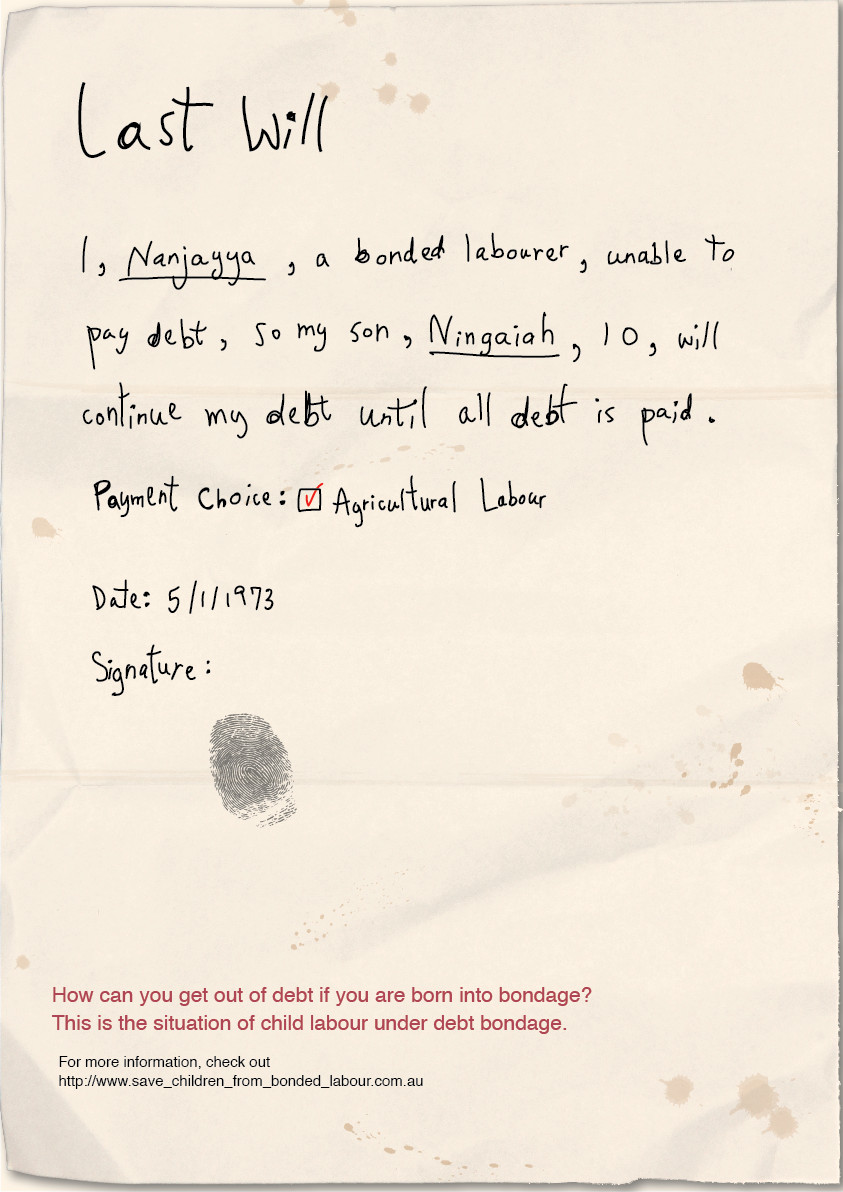 Last Will
I, Nanjayya, a bonded labourer, unable to
pay debt, so my son, Ningaiah, 10, will
continue my debt until all debt is paid.
Payment Choice: ☑ Agricultural Labour
Date: 5/1/1973
Signature:
How can you get out of debt if you are born into bondage?
This is the situation of child labour under debt bondage.
For more information, check out
http://www.save_children_from_bonded_labour.com.au